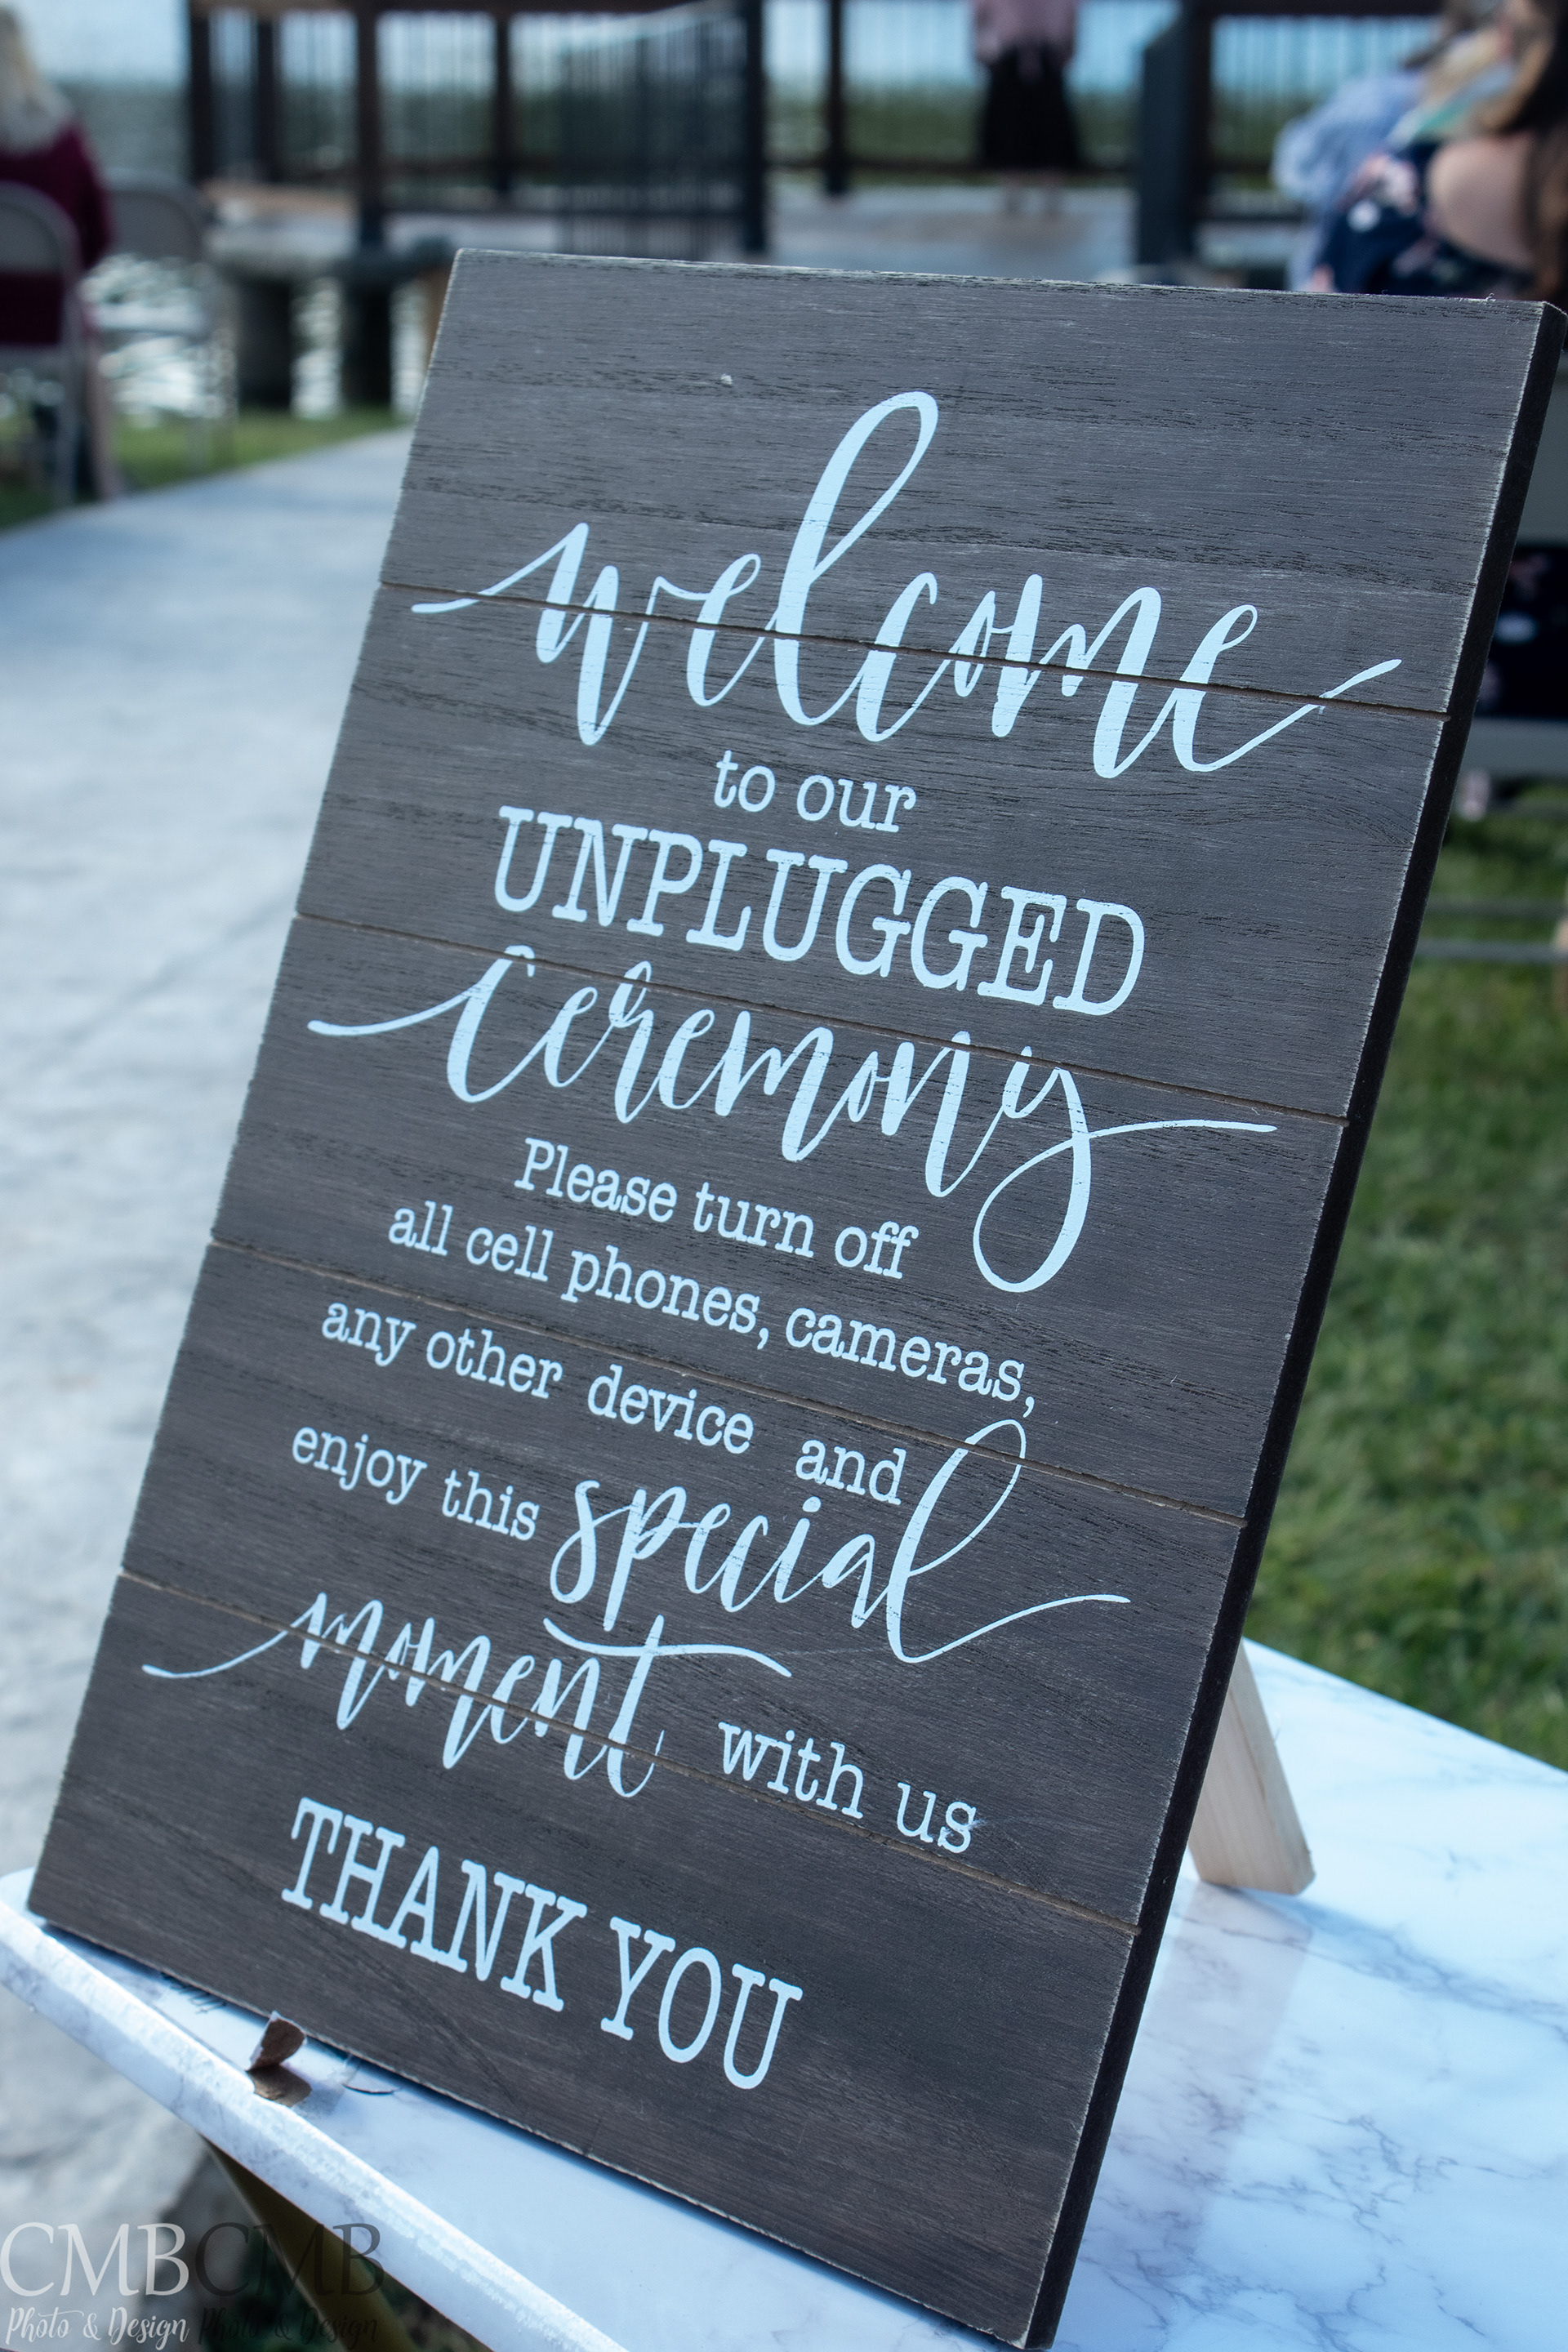 welcome
to our
UNPLUGGED
ceremony
Please turn off
all cell phones, cameras,
any other device and
enjoy this special
moment with us
THANK YOU
CMB CMB
Photo & Design Photo & Design